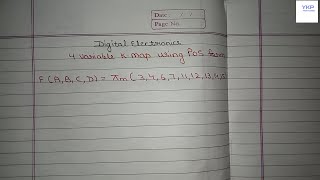 YKP
Date
Page No.
Digital Electronics
4 variable K map using POS form
F (A,B,C,D) = πm ( 3,4,6,7,11,12,13,14,15